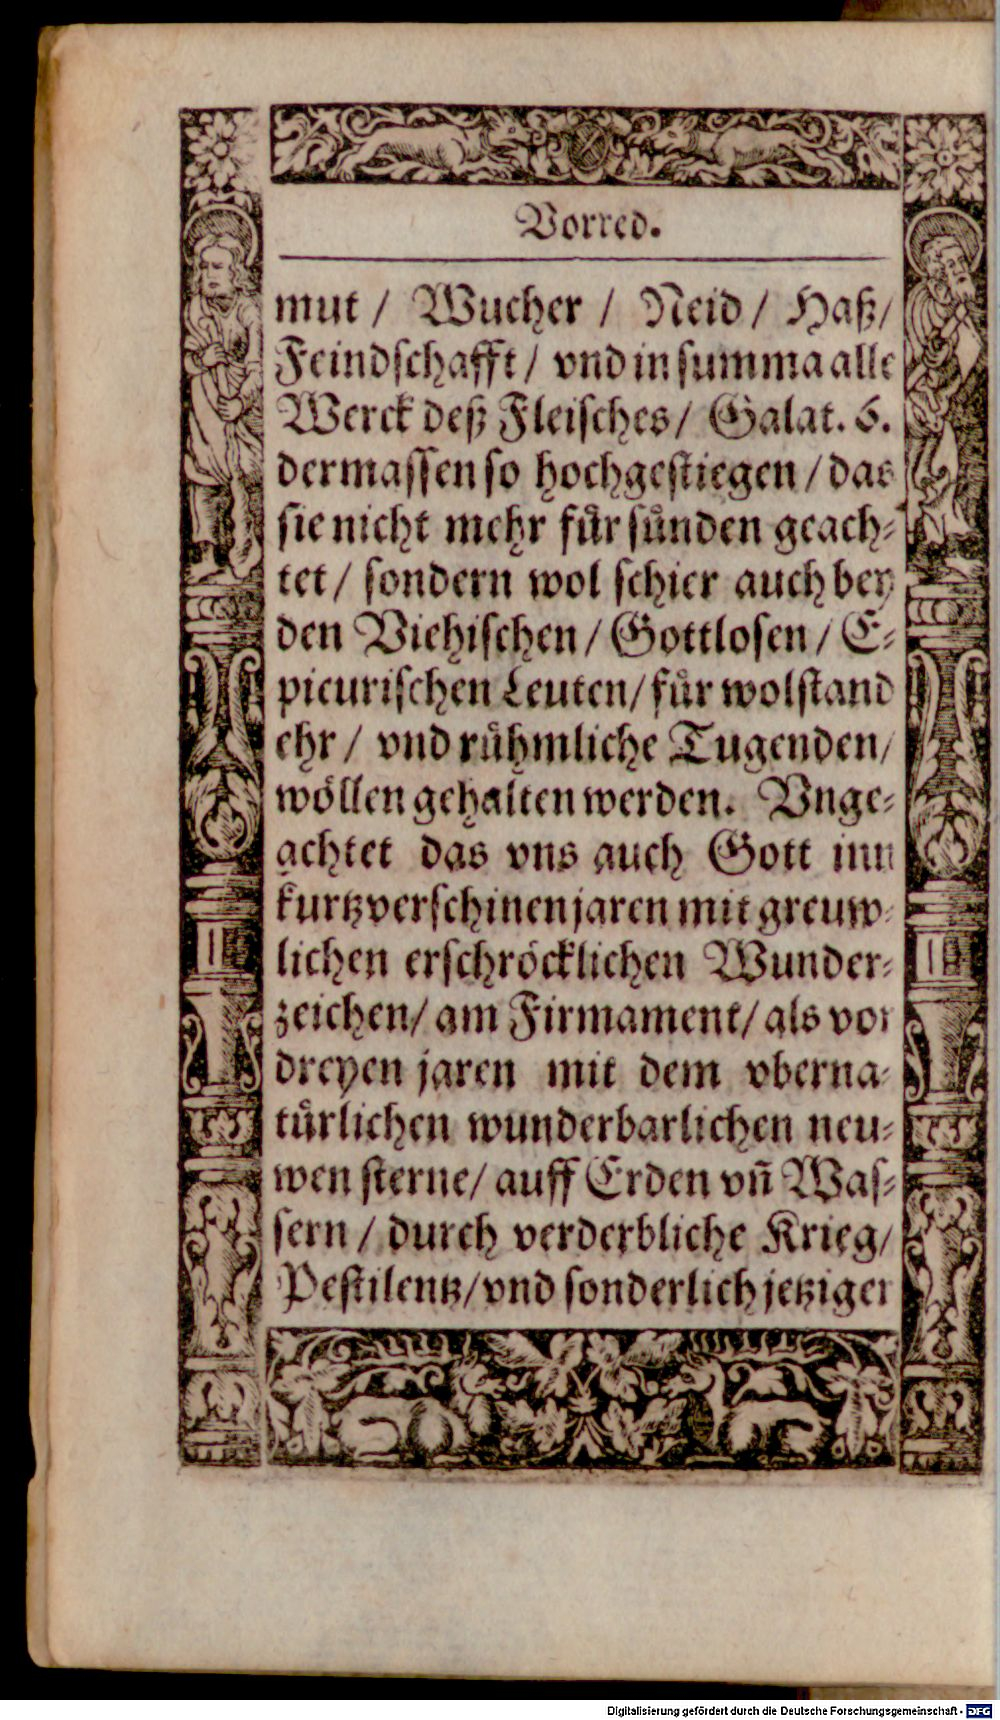 Vorred.
mut / Wucher / Neid / Haß /
Feindschafft / vnd in summa alle
Werck deß Fleisches / Galat. 6.
dermassen so hochgestiegen / das
sie nicht mehr fuͤr suͤnden geach⸗
tet / sondern wol schier auch bey
den Viehischen / Gottlosen / E⸗
picurischen Leuten / fuͤr wolstand
ehr / vnd ruͤhmliche Tugenden /
woͤllen gehalten werden. Vnge⸗
achtet das vns auch Gott inn
kurtz verschinen jaren mit greuw⸗
lichen erschroͤcklichen Wunder⸗
zeichen / am Firmament / als vor
dreyen jaren mit dem vberna⸗
tuͤrlichen wunderbarlichen neu⸗
wen sterne / auff Erden vñ Was⸗
sern / durch verderbliche Krieg /
Pestilentz / vnd sonderlich jetziger
Digitalisierung gefördert durch die Deutsche Forschungsgemeinschaft - DFG